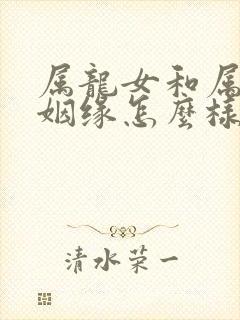 属龍女和属
姻缘怎麼樣
清水荣一